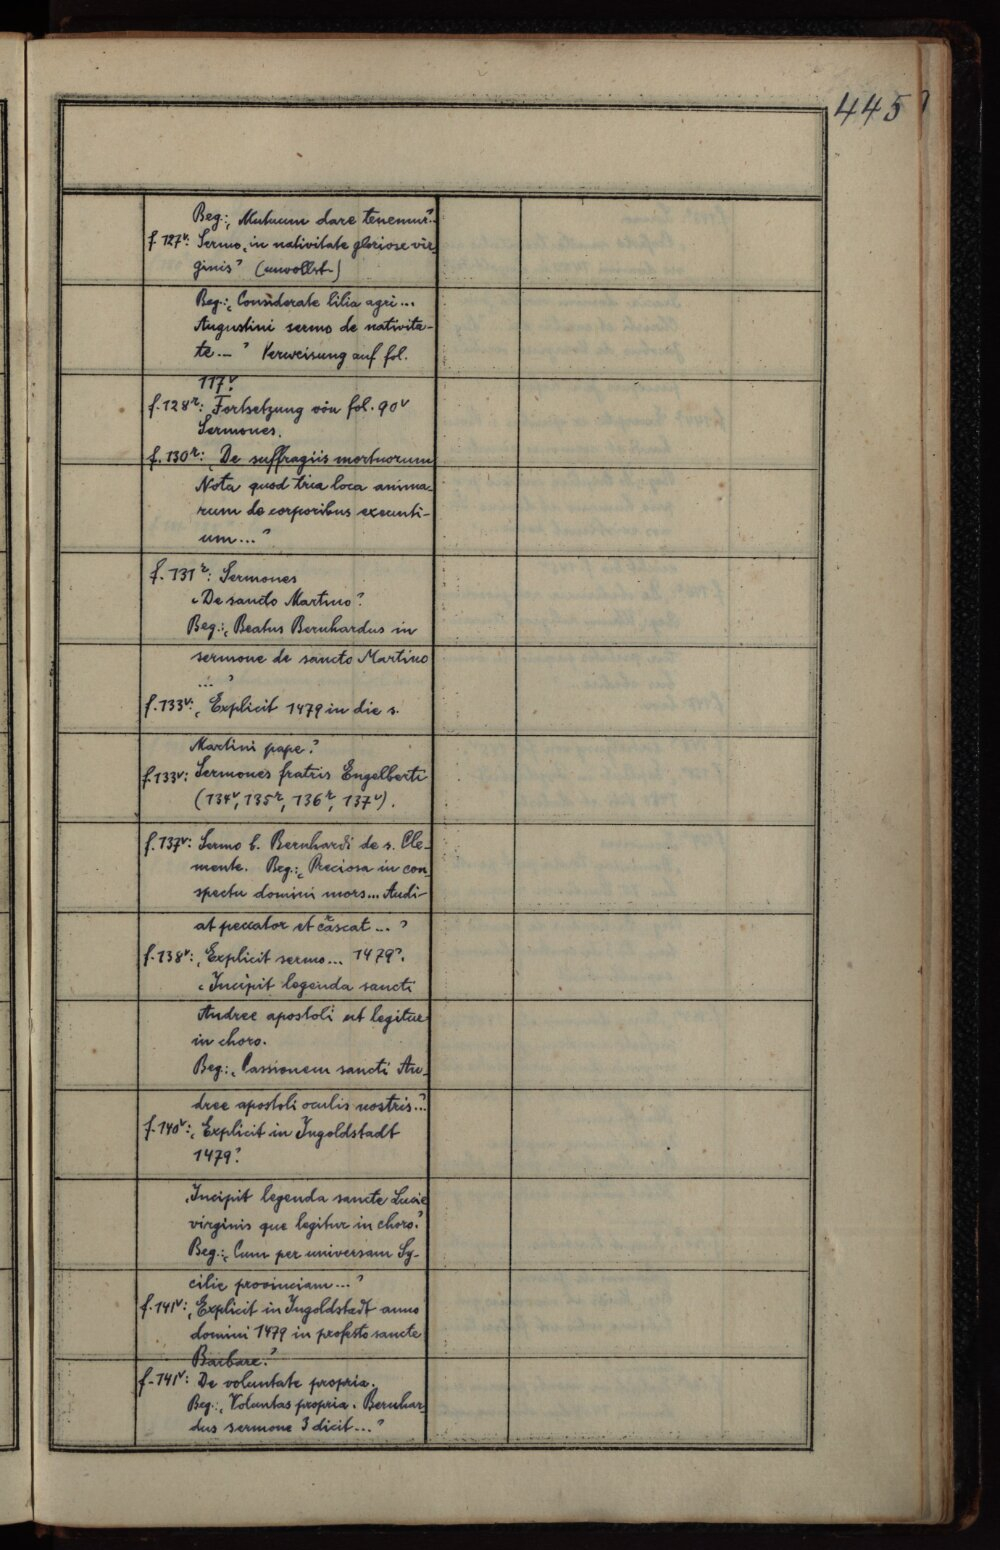 445
Beg.: „Mutuum dare tenemur“.
f 127v: Sermo „in nativitate gloriose vir-
ginis“ (unvollst.)
Beg.: „Considerate lilia agri...
Augustini sermo de nativita-
te...“ Verweisung auf fol.
117v.
f. 128r: Fortsetzung von fol. 90v
Sermones.
f. 130r: „De suffragiis mortuorum
Nota quod tria loca anima-
rum de corporibus exeunti-
um...“
f. 131r: Sermones
„De sancto Martino“.
Beg.: „Beatus Bernhardus in
sermone de sancto Martino
...“
f. 133v: „Explicit 1479 in die s.
Martini pape“.
f. 133v: Sermones fratris Engelberti
(134v, 135r, 136r, 137v).
f. 137v: Sermo b. Bernhardi de s. Cle-
mente. Beg.: „Preciosa in con-
spectu domini mors... Audi-
at peccator et crascat...“
f. 138v: „Explicit sermo... 1479“.
„Incipit legenda sancti
Andree apostoli ut legitur
in choro.
Beg.: „Passionem sancti An-
dree apostoli oculis nostris...“
f. 140v: „Explicit in Ingoldstadt
1479“.
„Incipit legenda sancte Lucie
virginis que legitur in choro“.
Beg.: „Cum per universam Sy-
cilie provinciam...“
f. 141v: „Explicit in Ingoldstadt anno
domini 1479 in profesto sancte
Barbare“.
f. 141v: De voluntate propria.
Beg.: „Voluntas propria. Bernhar-
dus sermone 3 dicit...“